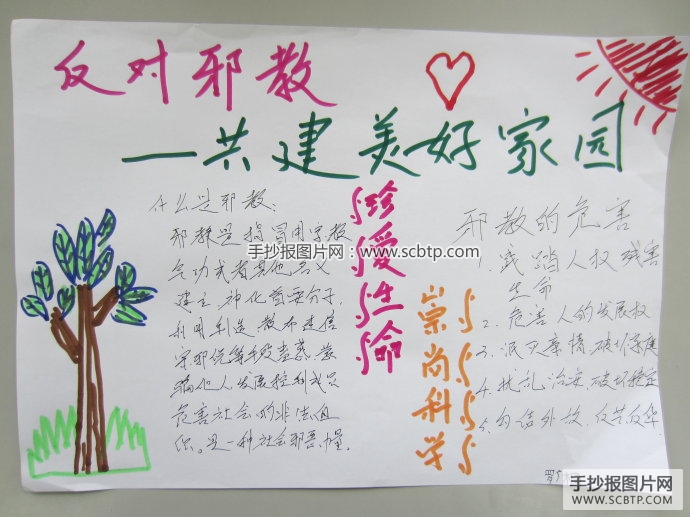 反对邪教
一共建美好家园
什么是邪教:
邪教是指冒用宗教
气功或者其他名义
建立,神化首要分子,
利用制造、散布迷信
宗邪说等手段蛊惑、蒙
骗他人发展控制成员
危害社会的非法组
织。是一种社会邪恶力量。
珍爱生命
崇尚科学
邪教的危害
1. 践踏人权 残害
生命
2. 危害人的发展权
3. 泯灭亲情 破坏家庭
4. 扰乱治安 破坏稳定
5. 勾结外敌, 反共反华
手抄报图片网 - www.scbtp.com
手抄报图片网
WWW.SCBTP.COM